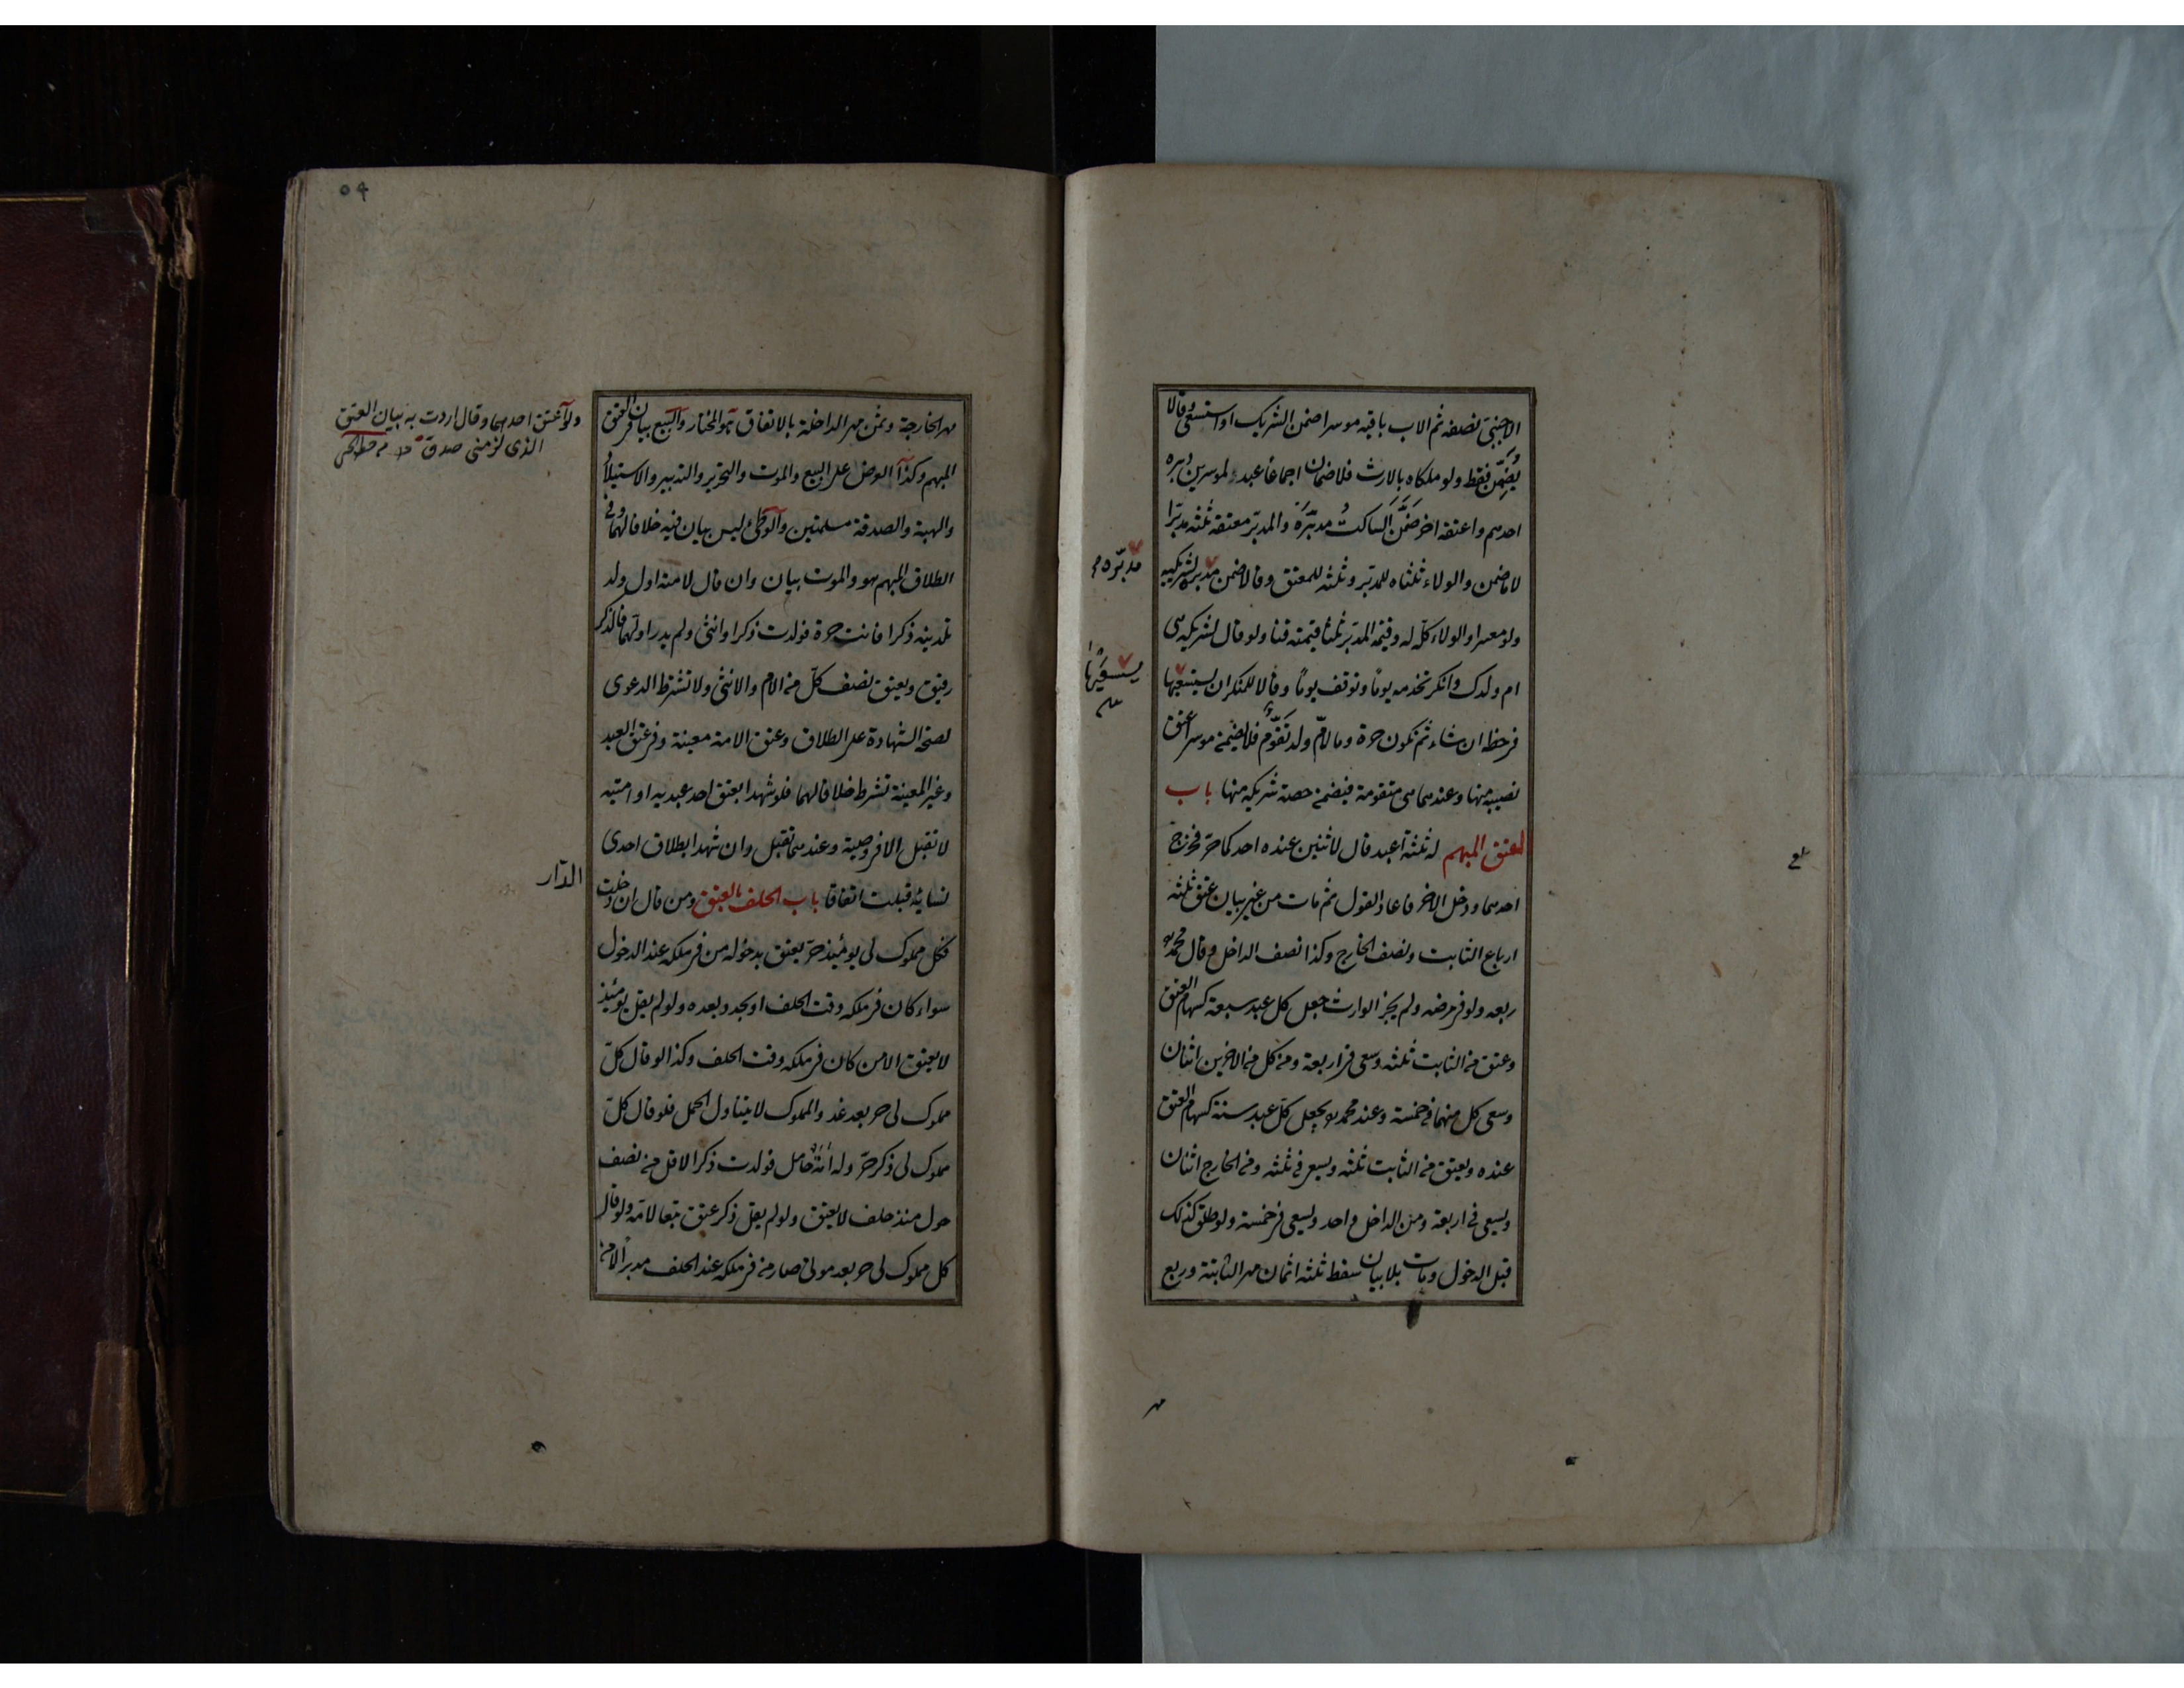 الاجنبىّ نصفه ثم الاب باقيه موسرا ضمن الشريك او استسعى وقالا
يُضَمِّن فقط ولو ملكاه بالارث فلا ضمان اجماعا عبد لموسرين دبره
احدهم واعتقه اخر ضَمَّنَ الساكتُ مدبّرَه والمدبّر معتقه ثلثه مدبّرا
لا ما ضمن والولاء ثلثاه للمدبّر وثلثه للمعتق وقالا ضمن مدبره لشريكيه
ولو معسرا والولاء كلّه له وقيمة المدبّر ثلثا قيمته قنا ولو قال لشريكه هى
ام ولدك وانكر تخدمه يوماً وتوقف يوماً وقالا للمنكر ان يستسعيها
فى حظه ان شاء ثم تكون حرة وما لامّ ولد تقوّم فلا يضمن موسر اعتق
نصيبه منها وعندهما هى متقومة فيضمن حصة شريكه منها باب
العتق المبهم له ثلثة اعبد قال لاثنين عنده احدكما حرّ فخرج
احدهما ودخل الاخر فاعاد القول ثم مات من غير بيان عتق ثلثة
ارباع الثابت ونصف الخارج وكذا نصف الداخل وقال محمد
ربعه ولو فى مرضه ولم يجز الوارث جعل كل عبد سبعة كسهام العتق
وعتق من الثابت ثلثه وسعى فى اربعة ومن كل من الاخرين اثنان
وسعى كل منهما فى خمسة وعند محمد يجعل كلّ عبد ستة كسهام العتق
عنده ويعتق من الثابت ثلثه ويسعى فى ثلثه ومن الخارج اثنان
ويسعى فى اربعة ومن الداخل واحد ويسعى فى خمسة ولو طلق كذلك
قبل الدخول ومات بلا بيان سقط ثلثه اثمان مهر الثابتة وربع
مدبّره
يستسعيها
مهر الخارجة وثمن مهر الداخلة بالاتفاق هو المختار والبيع بيان فى العتق
المبهم وكذا العرض على البيع والموت والتحرير والتدبير والاستيلاد
والهبة والصدقة مسلمتين والوطئ ليس ببيان فيه خلافا لهما وفى
الطلاق المبهم هو والموت بيان وان قال لامته اول ولد
تلدينه ذكرا فانت حرة فولدت ذكرا وانثى ولم يدر اولهما فالذكر
رقيق ويعتق نصف كلّ من الام والانثى ولا تشترط الدعوى
لصحة الشهادة على الطلاق وعتق الامة معينة وفى عتق العبد
وغير المعينة تشرط خلافا لهما فلو شهدا بعتق احد عبديه او امتيه
لا تقبل الا فى وصية وعندهما تقبل وان شهدا بطلاق احدى
نسائه قبلت اتفاقا باب الحلف بالعتق ومن قال ان دخلت
فكل مملوك لى يومئذ حرّ يعتق بدخوله من فى ملكه عند الدخول
سواء كان فى ملكه وقت الحلف او تجدد بعده ولو لم يقل يومئذ
لا يعتق الا من كان فى ملكه وقت الحلف وكذا لو قال كلّ
مملوك لى حر بعد غد والمملوك لا يتناول الحمل فلو قال كلّ
مملوك لى ذكر حرّ وله امة حامل فولدت ذكرا لاقل من نصف
حول منذ حلف لا يعتق ولو لم يقل ذكر عتق تبعا لامّه ولو قال
كل مملوك لى حر بعد موتى صار من فى ملكه عند الحلف مدبرا لا من
ولو اعتق احدهما وقال اردت به بيان العتق
الذى لزمنى صدق
الدّار